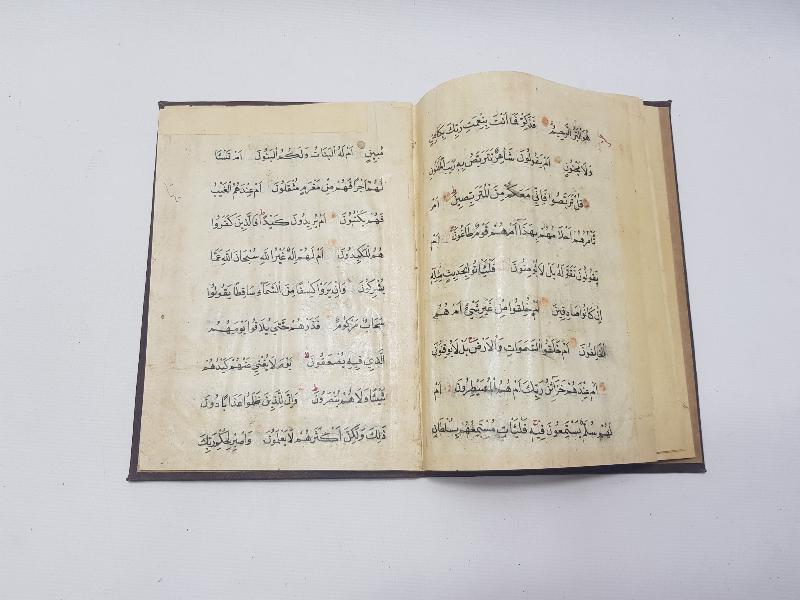 هُوَ الْبَرُّ الرَّحِيمُ فَذَكِّرْ فَمَا أَنْتَ بِنِعْمَتِ رَبِّكَ بِكَاهِنٍ
وَلَا مَجْنُونٍ أَمْ يَقُولُونَ شَاعِرٌ نَتَرَبَّصُ بِهِ رَيْبَ الْمَنُونِ
قُلْ تَرَبَّصُوا فَإِنِّي مَعَكُمْ مِنَ الْمُتَرَبِّصِينَ أَمْ
تَأْمُرُهُمْ أَحْلَامُهُمْ بِهَذَا أَمْ هُمْ قَوْمٌ طَاغُونَ أَمْ
يَقُولُونَ تَقَوَّلَهُ بَلْ لَا يُؤْمِنُونَ فَلْيَأْتُوا بِحَدِيثٍ مِثْلِهِ
إِنْ كَانُوا صَادِقِينَ أَمْ خُلِقُوا مِنْ غَيْرِ شَيْءٍ أَمْ هُمُ
الْخَالِقُونَ أَمْ خَلَقُوا السَّمَوَاتِ وَالْأَرْضَ بَلْ لَا يُوقِنُونَ
أَمْ عِنْدَهُمْ خَزَائِنُ رَبِّكَ أَمْ هُمُ الْمُصَيْطِرُونَ أَمْ
لَهُمْ سُلَّمٌ يَسْتَمِعُونَ فِيهِ فَلْيَأْتِ مُسْتَمِعُهُمْ بِسُلْطَانٍ
مُبِينٍ أَمْ لَهُ الْبَنَاتُ وَلَكُمُ الْبَنُونَ أَمْ تَسْـَٔـ
لُهُمْ أَجْرًا فَهُمْ مِنْ مَغْرَمٍ مُثْقَلُونَ أَمْ عِنْدَهُمُ الْغَيْبُ
فَهُمْ يَكْتُبُونَ أَمْ يُرِيدُونَ كَيْدًا فَالَّذِينَ كَفَرُوا
هُمُ الْمَكِيدُونَ أَمْ لَهُمْ إِلَهٌ غَيْرُ اللَّهِ سُبْحَانَ اللَّهِ عَمَّا
يُشْرِكُونَ وَإِنْ يَرَوْا كِسْفًا مِنَ السَّمَاءِ سَاقِطًا يَقُولُوا
سَحَابٌ مَرْكُومٌ فَذَرْهُمْ حَتَّى يُلَاقُوا يَوْمَهُمُ
الَّذِي فِيهِ يُصْعَقُونَ يَوْمَ لَا يُغْنِي عَنْهُمْ كَيْدُهُمْ
شَيْئًا وَلَا هُمْ يُنْصَرُونَ وَإِنَّ لِلَّذِينَ ظَلَمُوا عَذَابًا دُونَ
ذَلِكَ وَلَكِنَّ أَكْثَرَهُمْ لَا يَعْلَمُونَ وَاصْبِرْ لِحُكْمِ رَبِّكَ